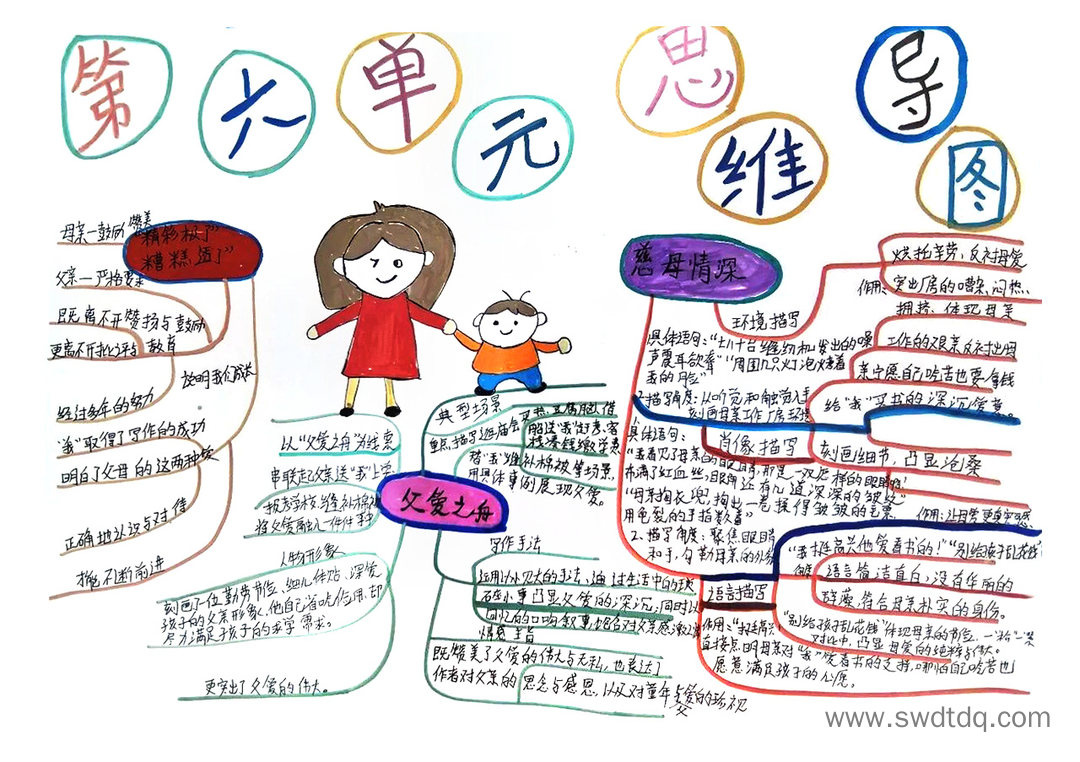 第六单元思维导图
母亲一鼓励 赞美
"精彩极了"
"糟糕透了"
父亲一严格要求
既离不开赞扬与鼓励
更离不开批评与教育
说明我们成长
经过多年的努力
"我"取得了写作的成功
明白了父母的这两种爱
正确地认识与对待
不断前进
典型场景
重点描写逛庙会
用具体事例展现父爱。
以"父爱之舟"为线索
串联起父亲送"我"上学、
将父爱融入一件件
父爱之舟
人物形象
刻画了一位勤劳节俭、细心体贴、深爱
孩子的父亲形象,他自己省吃俭用,却
尽力满足孩子的求学需求。
更突出了父爱的伟大。
写作手法
运用以小见大的手法,通过生活中的琐
碎小事凸显父爱的深沉,同时以
回忆的口吻叙事,饱含对父亲感激之情
既赞美了父爱的伟大与无私,也表达了
作者对父亲的思念与感恩,以及对童年与父爱的珍视
慈母情深
环境描写
烘托辛劳,反衬母爱
作用:突出厂房的嘈杂、闷热、
拥挤,体现母亲
工作的艰辛反衬出母
亲宁愿自己吃苦也要拿钱
给"我"买书的深沉爱意。
具体语句:"七八十台缝纫机发出的噪
声震耳欲聋""周围几只灯泡烤着
我的脸"
2.描写角度:从听觉和触觉入手
刻画母亲工作厂房环境
肖像描写
刻画细节,凸显沧桑
具体语句:
"我看见了母亲的眼睛,那是一双怎样的眼睛啊!
布满了红血丝,眼角还有几道深深的皱纹"
"母亲掏衣兜,掏出一卷揉得皱皱的毛票
用龟裂的手指数着"
2.描写角度:聚焦眼睛
和手,勾勒母亲的外貌
语言描写
"我挺高兴他爱看书的!""别给孩子乱花钱"
语言简洁直白,没有华丽的
辞藻,符合母亲朴实的身份。
作用:"我挺高兴"
直接点明母亲对"我"爱看书的支持,哪怕自己吃苦也
愿意满足孩子的心愿。
"别给孩子乱花钱"体现母亲的节俭,
对比中,凸显母爱的纯粹与伟大。
www.swdtdq.com